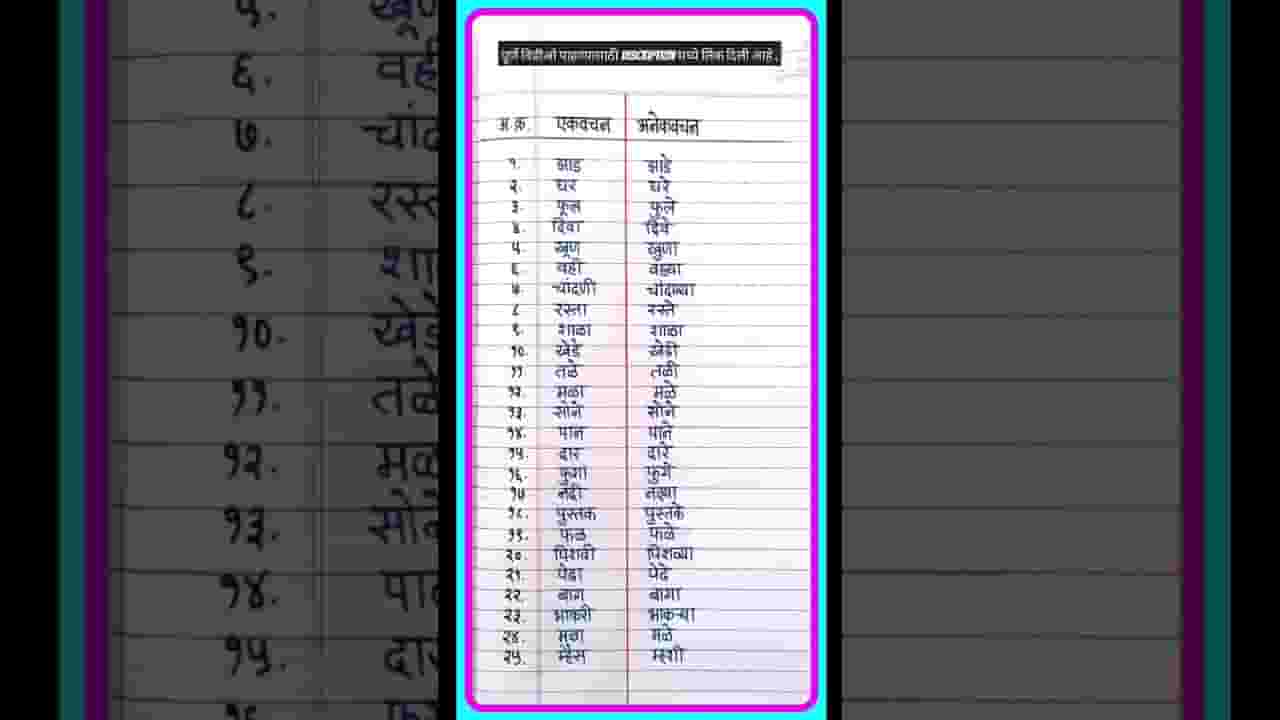 पूर्ण व्हिडीओ पाहण्यासाठी DESCRIPTION मध्ये लिंक दिली आहे.
अ.क्र. एकवचन अनेकवचन
१. झाड झाडे
२. घर घरे
३. फूल फुले
४. दिवा दिवे
५. खूण खुणा
६. वही वह्या
७. चांदणी चांदण्या
८. रस्ता रस्ते
९. शाळा शाळा
१०. खेडे खेडी
११. तळे तळी
१२. मळा मळे
१३. सोने सोने
१४. पान पाने
१५. दार दारे
१६. फुगा फुगे
१७. नदी नद्या
१८. पुस्तक पुस्तके
१९. फळ फळे
२०. पिशवी पिशव्या
२१. पेढा पेढे
२२. बाग बागा
२३. भाकरी भाकऱ्या
२४. मळा मळे
२५. म्हैस म्हशी
५. खूण
६. वही
७.
८.
९.
१०. खेडे
११. तळे
१२.
१३. सोने
१४.
१५. दार
१६.